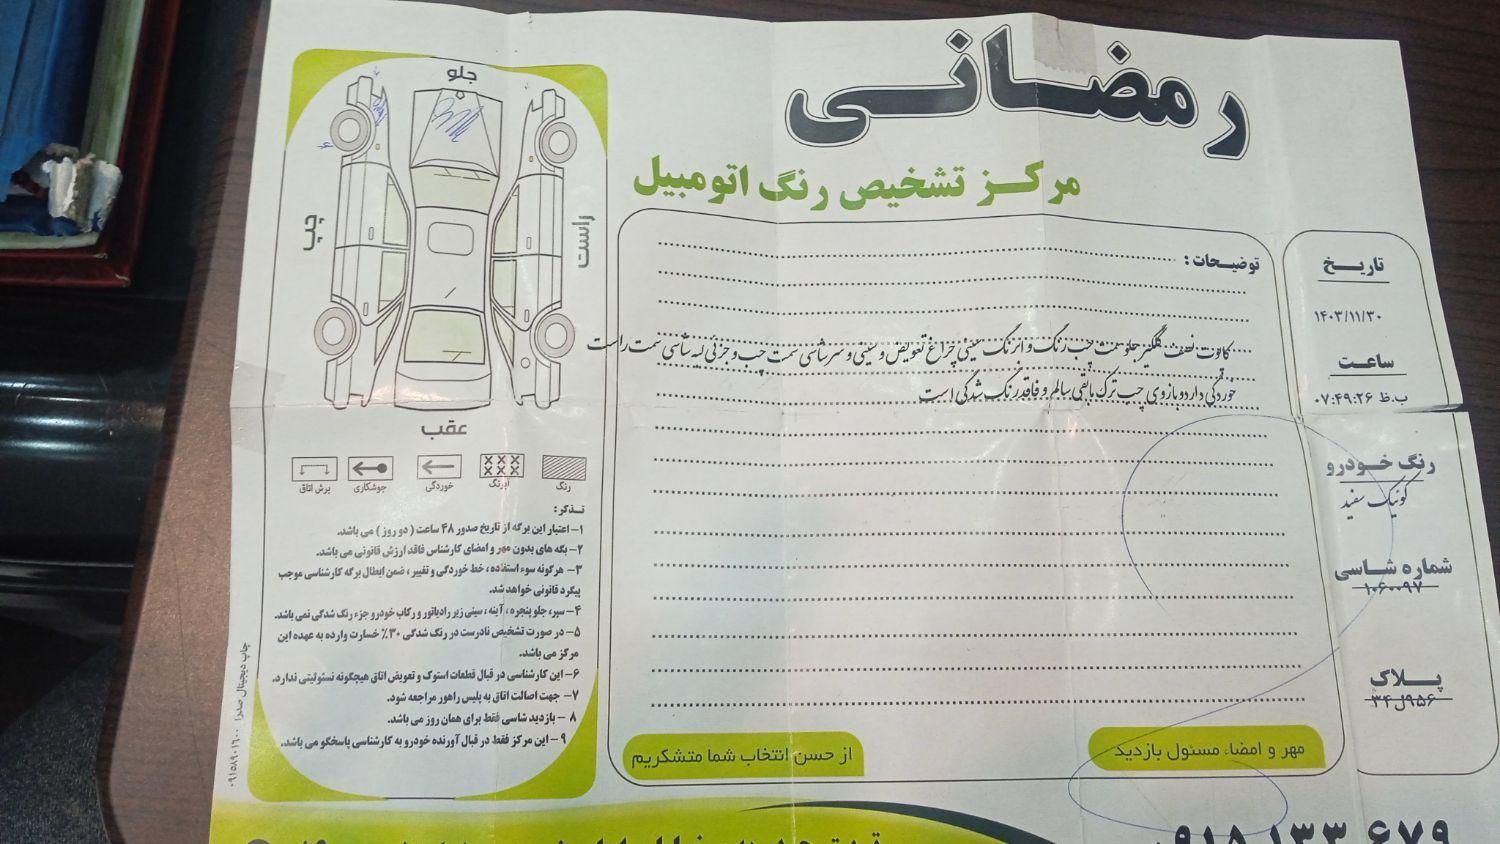 رمضانی
مرکز تشخیص رنگ اتومبیل
توضیحات :
کاپوت نصف گلگیر جلو سمت چپ رنگ و ابرنگ سینی چراغ تعویض و سینی و سر شاسی سمت چپ و جزئی لبه شاسی سمت راست
خوردگی دارد بازوی چپ ترک مابقی سالم و فاقد رنگ شدگی است
تاریخ
۱۴۰۳/۱۱/۳۰
ساعت
۰۷:۴۹:۲۶ ب.ظ
رنگ خودرو
کونیک سفید
شماره شاسی
۱۰۶۰۰۹۷
پلاک
مهر و امضاء مسئول بازدید
از حسن انتخاب شما متشکریم
جلو
چپ
راست
عقب
رنگ
آبرنگ
خوردگی
جوشکاری
برش اتاق
تذکر :
۱- اعتبار این برگه از تاریخ صدور ۴۸ ساعت ( دو روز ) می باشد.
۲- بگه های بدون مهر و امضای کارشناس فاقد ارزش قانونی می باشد.
۳- هرگونه سوء استفاده ، خط خوردگی و تغییر ، ضمن ابطال برگه کارشناسی موجب
پیگرد قانونی خواهد شد.
۴- سپر، جلو پنجره ، آینه ، سینی زیر رادیاتور و رکاب خودرو جزء رنگ شدگی نمی باشد.
۵- در صورت تشخیص نادرست در رنگ شدگی ۳۰٪ خسارت وارده به عهده این
مرکز می باشد.
۶- این کارشناسی در قبال قطعات استوک و تعویض اتاق هیچگونه مسئولیتی ندارد.
۷- جهت اصالت اتاق به پلیس راهور مراجعه شود.
۸ - بازدید شاسی فقط برای همان روز می باشد.
۹ - این مرکز فقط در قبال آورنده خودرو به کارشناسی پاسخگو می باشد.
چاپ دیجیتال صدرا ۰۹۱۵۸۹۰۱۶۰۰
۰۹۱۵ ۱۳۳ ۶۷۹